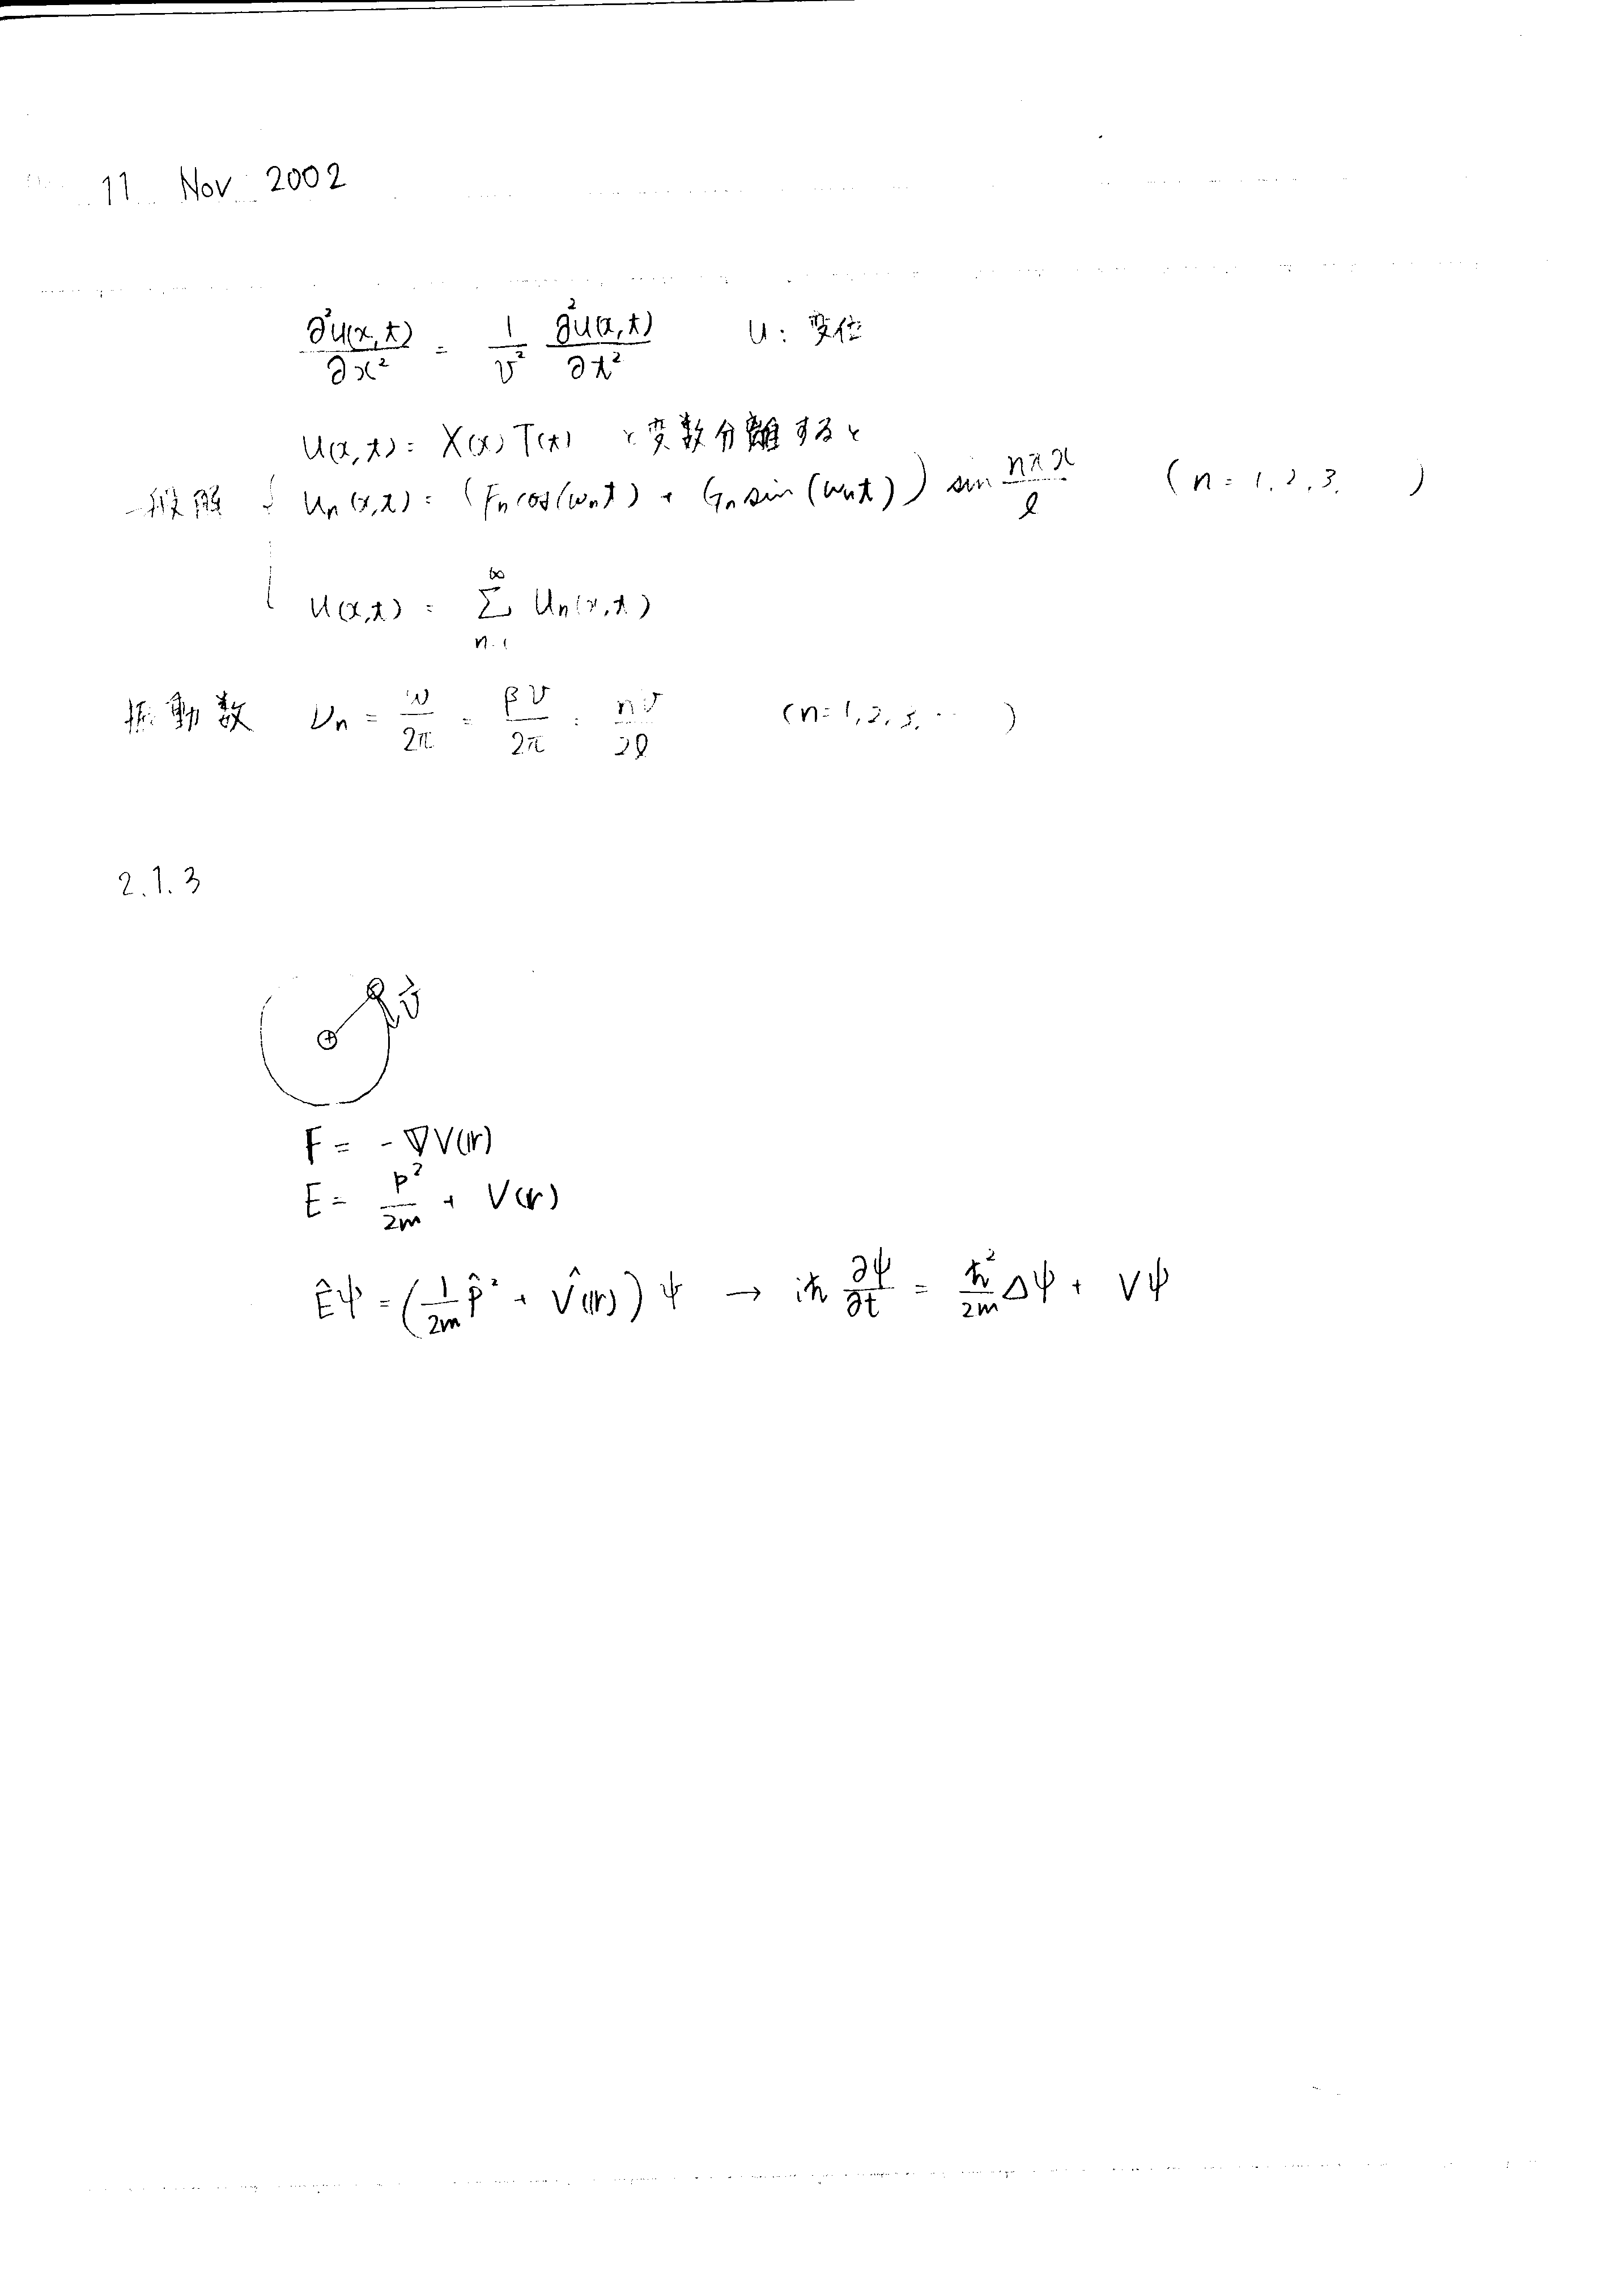 11 Nov 2002
∂²u(x,t)/∂x² = 1/v² ∂²u(x,t)/∂t² u: 変位
u(x,t) = X(x)T(t) と変数分離すると
一般解 { uₙ(x,t) = (Fₙcos(ωₙt) + Gₙsin(ωₙt)) sin nπx/ℓ (n = 1, 2, 3, )
u(x,t) = Σ_{n=1}^{∞} uₙ(x,t)
振動数 νₙ = ω/2π = βv/2π = nv/2ℓ (n=1,2,3,…)
2.1.3
⊕ v⃗
F = -∇V(r)
E = p²/2m + V(r)
Êψ = (1/2m p̂² + V̂(r))ψ → iħ ∂ψ/∂t = ħ²/2m Δψ + Vψ